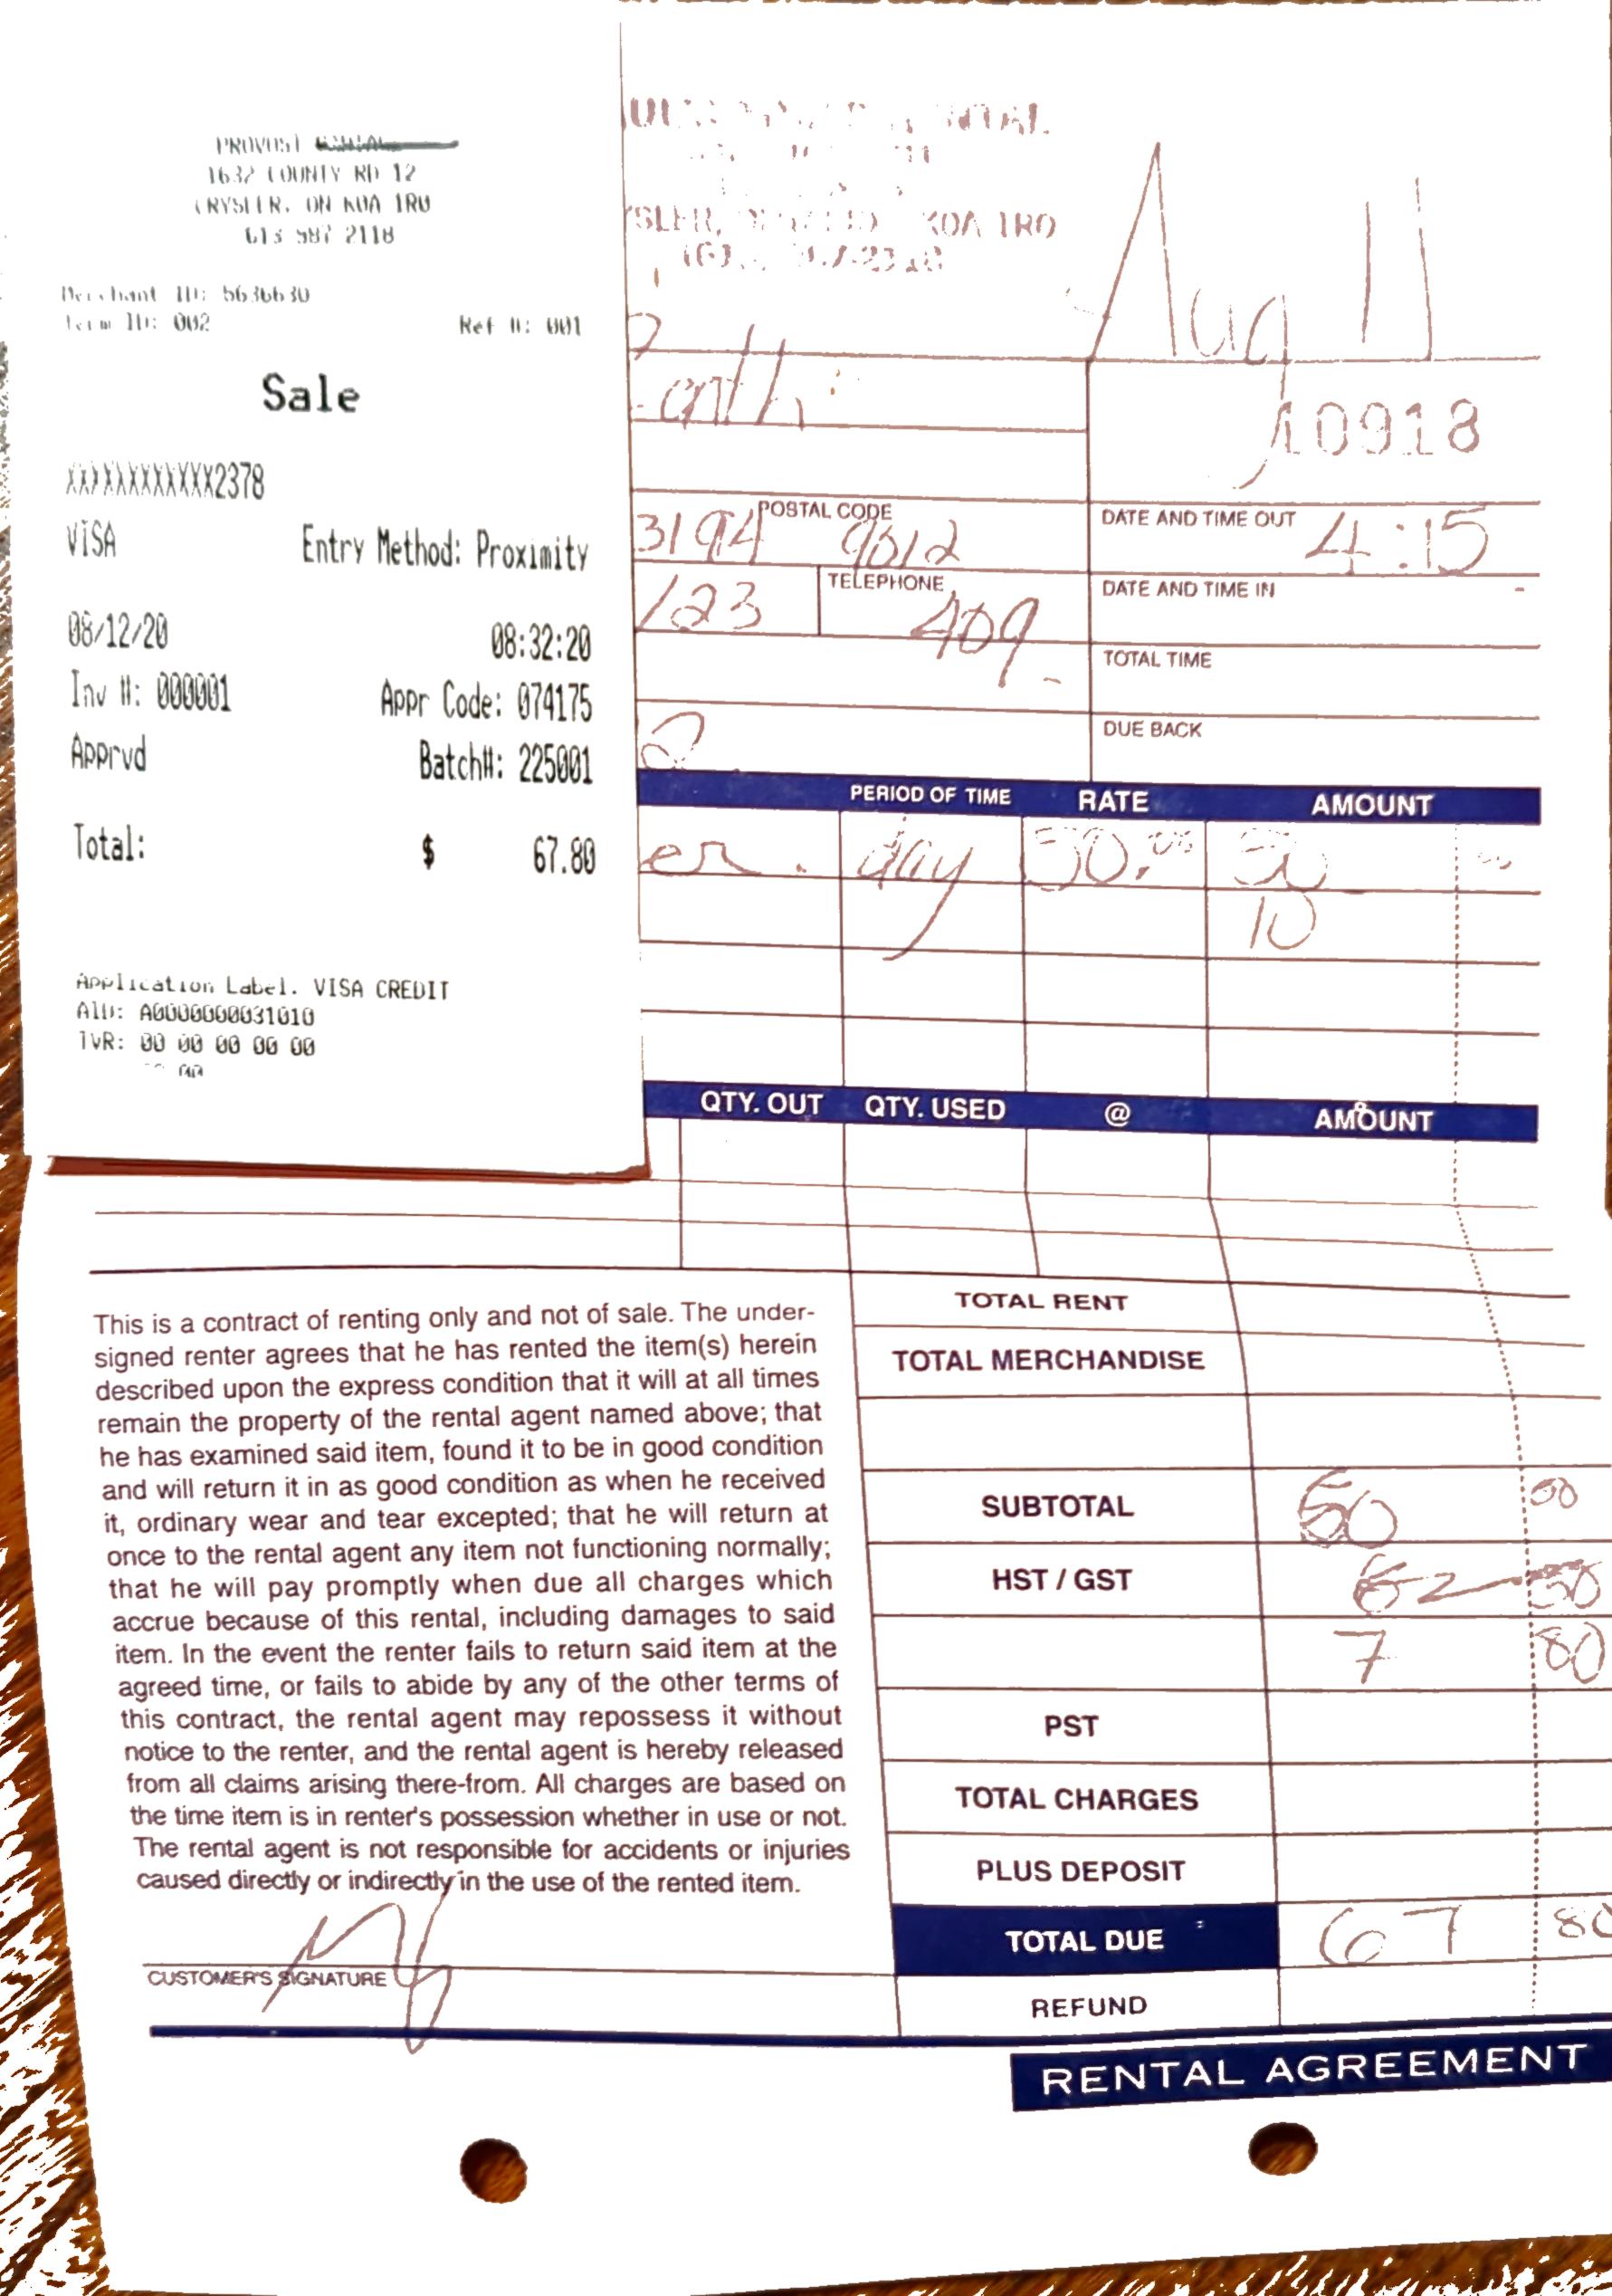 PROVOST
1632 COUNTY RD 12
CRYSLER, ON K0A 1R0
613 987 2118
Merchant ID: 5636630
Term ID: 002 Ref #: 001
Sale
XXXXXXXXXXXX2378
VISA Entry Method: Proximity
08/12/20 08:32:20
Inv #: 000001 Appr Code: 074175
Apprvd Batch#: 225001
Total: $ 67.80
Application Label. VISA CREDIT
AID: A0000000031010
TVR: 00 00 00 00 00
K0A 1R0
Aug 11
10918
POSTAL CODE
3194 9012
DATE AND TIME OUT 4:15
123
TELEPHONE
409
DATE AND TIME IN
TOTAL TIME
2
DUE BACK
PERIOD OF TIME RATE AMOUNT
er. day 50.00 50 00
10
QTY. OUT QTY. USED @ AMOUNT
This is a contract of renting only and not of sale. The under-
signed renter agrees that he has rented the item(s) herein
described upon the express condition that it will at all times
remain the property of the rental agent named above; that
he has examined said item, found it to be in good condition
and will return it in as good condition as when he received
it, ordinary wear and tear excepted; that he will return at
once to the rental agent any item not functioning normally;
that he will pay promptly when due all charges which
accrue because of this rental, including damages to said
item. In the event the renter fails to return said item at the
agreed time, or fails to abide by any of the other terms of
this contract, the rental agent may repossess it without
notice to the renter, and the rental agent is hereby released
from all claims arising there-from. All charges are based on
the time item is in renter's possession whether in use or not.
The rental agent is not responsible for accidents or injuries
caused directly or indirectly in the use of the rented item.
CUSTOMER'S SIGNATURE
TOTAL RENT
TOTAL MERCHANDISE
SUBTOTAL 60 00
HST / GST
7 80
PST
TOTAL CHARGES
PLUS DEPOSIT
TOTAL DUE 67 80
REFUND
RENTAL AGREEMENT